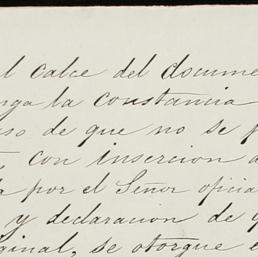 al calce del docume
nga la constancia
so de que no se p
con insercion d
a por el Señor oficia
y declaracion de q
ginal, se otorgue e